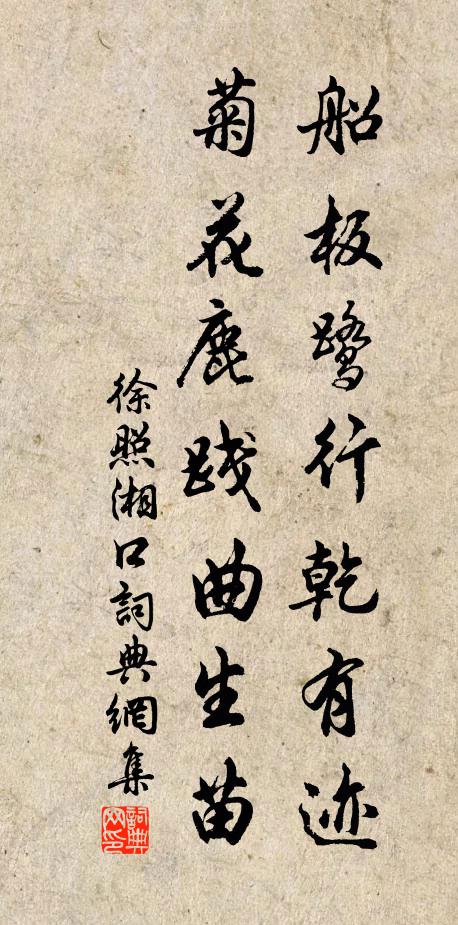 船板鹭行乾有迹
菊花鹿践曲生苗
徐照湘口詞典網集
詞典网印